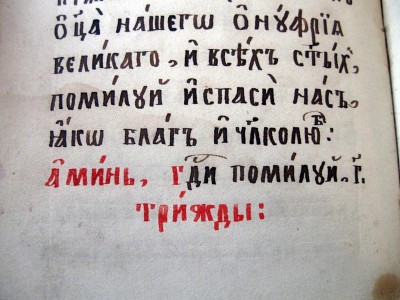 ѻ҆ц҃а на́шегѡ ѻ҆ну́фрїа
вели́каго, и҆ всѣ́хъ ст҃ы́хъ,
поми́луй и҆ спасѝ на́съ,
ꙗ҆́кѡ бла́гъ и҆ чл҃колю́б:
а҆ми́нь, гд҇и поми́луй. г҃.
три́жды: